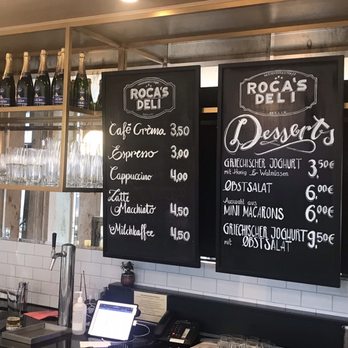 ROCA'S
DELI
Café Crèma 3,50
Espresso 3,00
Cappuccino 4,00
Latte
Macchiato 4,50
Milchkaffee 4,50
ROCA'S
DELI
BERLIN
Desserts
GRIECHISCHER JOGHURT 3,50€
mit Honig & Walnüssen
OBSTSALAT 6,00€
Auswahl aus
MINI MACARONS 6,00€
GRIECHISCHER JOGHURT 9,50€
mit OBSTSALAT